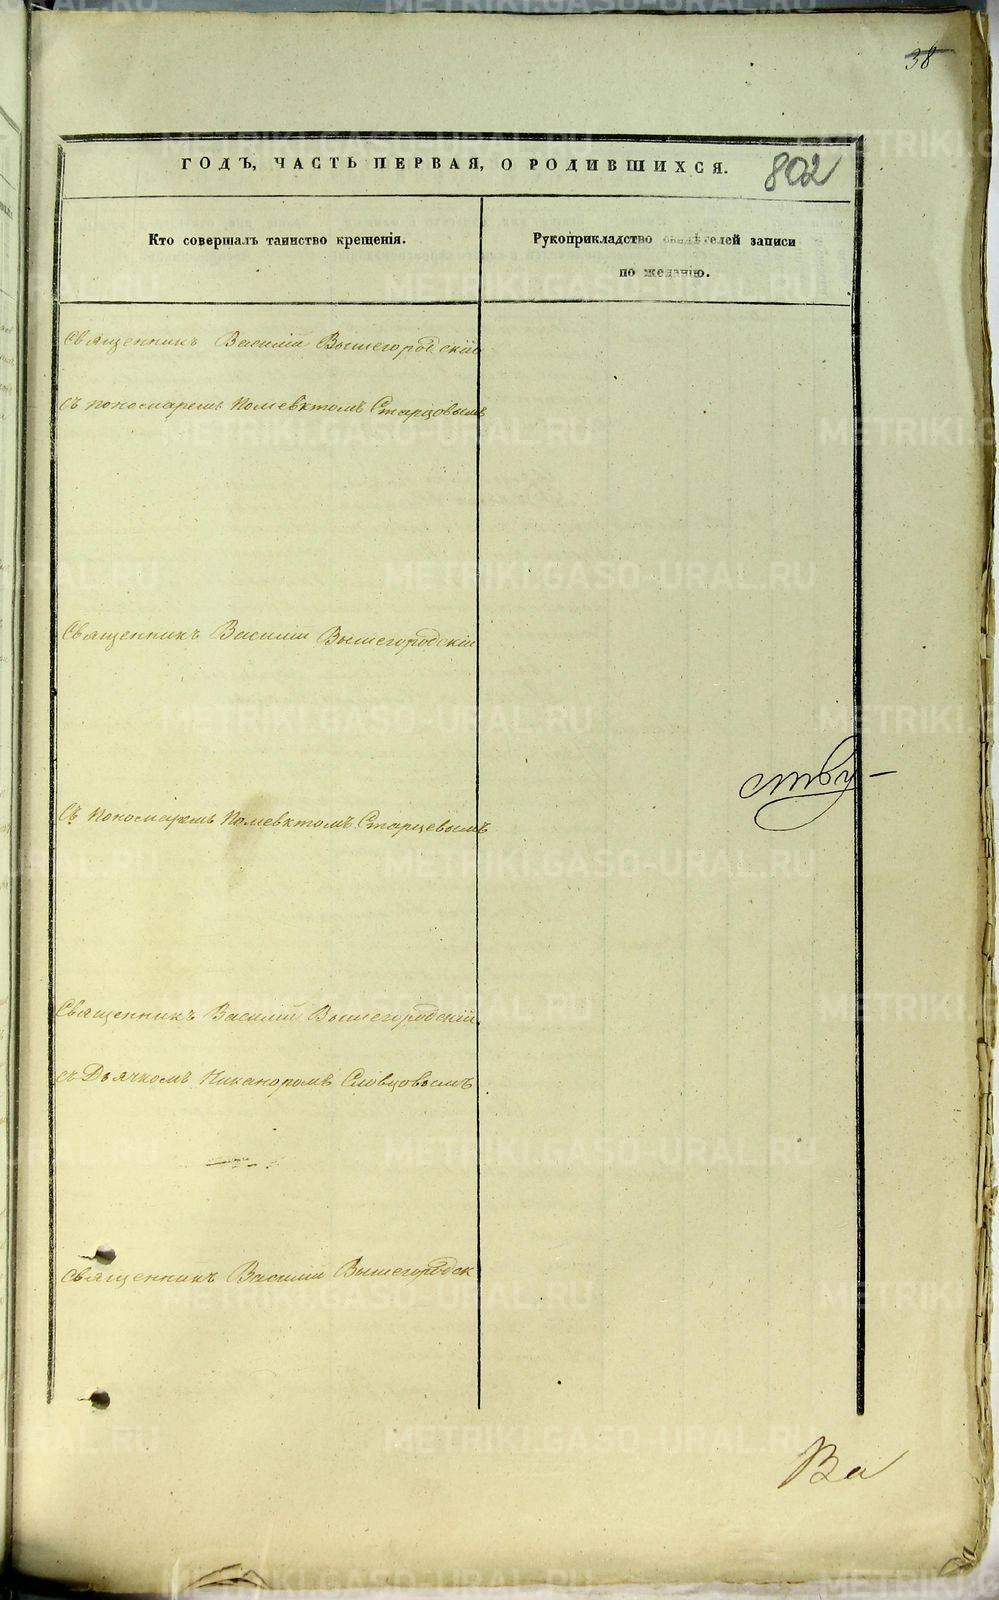 38
ГОДЪ, ЧАСТЬ ПЕРВАЯ, О РОДИВШИХСЯ.
802
Кто совершалъ таинство крещенія.
Рукоприкладство свидѣтелей записи
по желанію.
Священникъ Василій Вышегородскій
съ пономаремъ Полевктомъ Старцовымъ
Священникъ Василій Вышегородскій
ству-
Съ Пономаремъ Полевктомъ Старцевымъ
Священникъ Василій Вышегородскій
съ Дьячкомъ Никаноромъ Словцовымъ
Священникъ Василій Вышегородск
Ва
METRIKI.GASO-URAL.RU